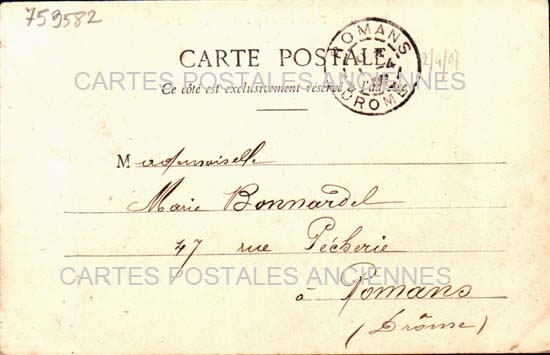 759582
CARTE POSTALE
ROMANS
DROME
2/4/07
CARTES POSTALES ANCIENNES
Ce côté est exclusivement réservé à l'adresse
Mademoiselle
Marie Bonnardel
47 rue Pécherie
CARTES POSTALES ANCIENNES
à Romans
(Drôme)